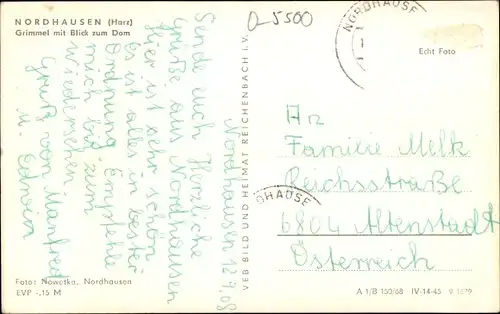 NORDHAUSEN (Harz)
Grimmel mit Blick zum Dom
O-5500
NORDHAUSE
Echt Foto
Nordhausen 12.7.68
Sende euch Herzliche
Grüße aus Nordhausen
Hier ist sehr schön
Es ist alles in bester
Ordnung. Empfehle
mich bis zum
wiedersehen.
Gruß von Manfred
u. Edwin
VEB BILD UND HEIMAT REICHENBACH I. V.
An
Familie Melk
Reichsstraße
DHAUSE
6804 Altenstadt
Österreich
Foto: Nowotka, Nordhausen
EVP -,15 M
A 1/B 150/68 IV-14-45 9 1679